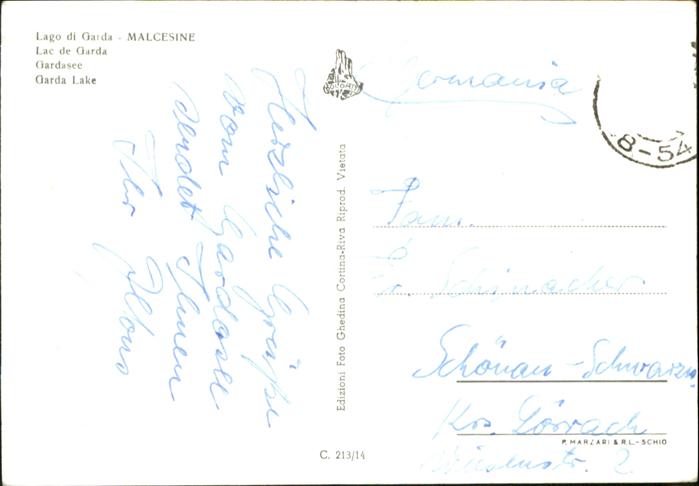 Lago di Garda - MALCESINE
Lac de Garda
Gardasee
Garda Lake
Herzliche Grüße
vom Gardasee
sendet Ihnen
Ihr
Edizioni Foto Ghedina Cortina-Riva Riprod. Vietata
C. 213/14
Germania
8-54
Fam.
Schönau-Schwarzw.
Krs. Lörrach
P. MARZARI & R.L.-SCHIO
Wiesenstr. 2.